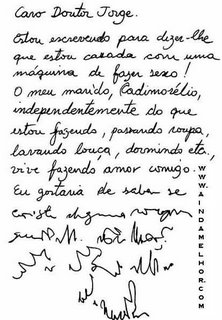 Caro Doutor Jorge.
Estou escrevendo para dizer-lhe
que estou casada com uma
máquina de fazer sexo!
O meu marido, Radimorélio,
independentemente do que
estou fazendo, passando roupa,
lavando louça, dormindo etc.,
vive fazendo amor comigo.
Eu gostaria de saber se
WWW.AINDAMELHOR.COM